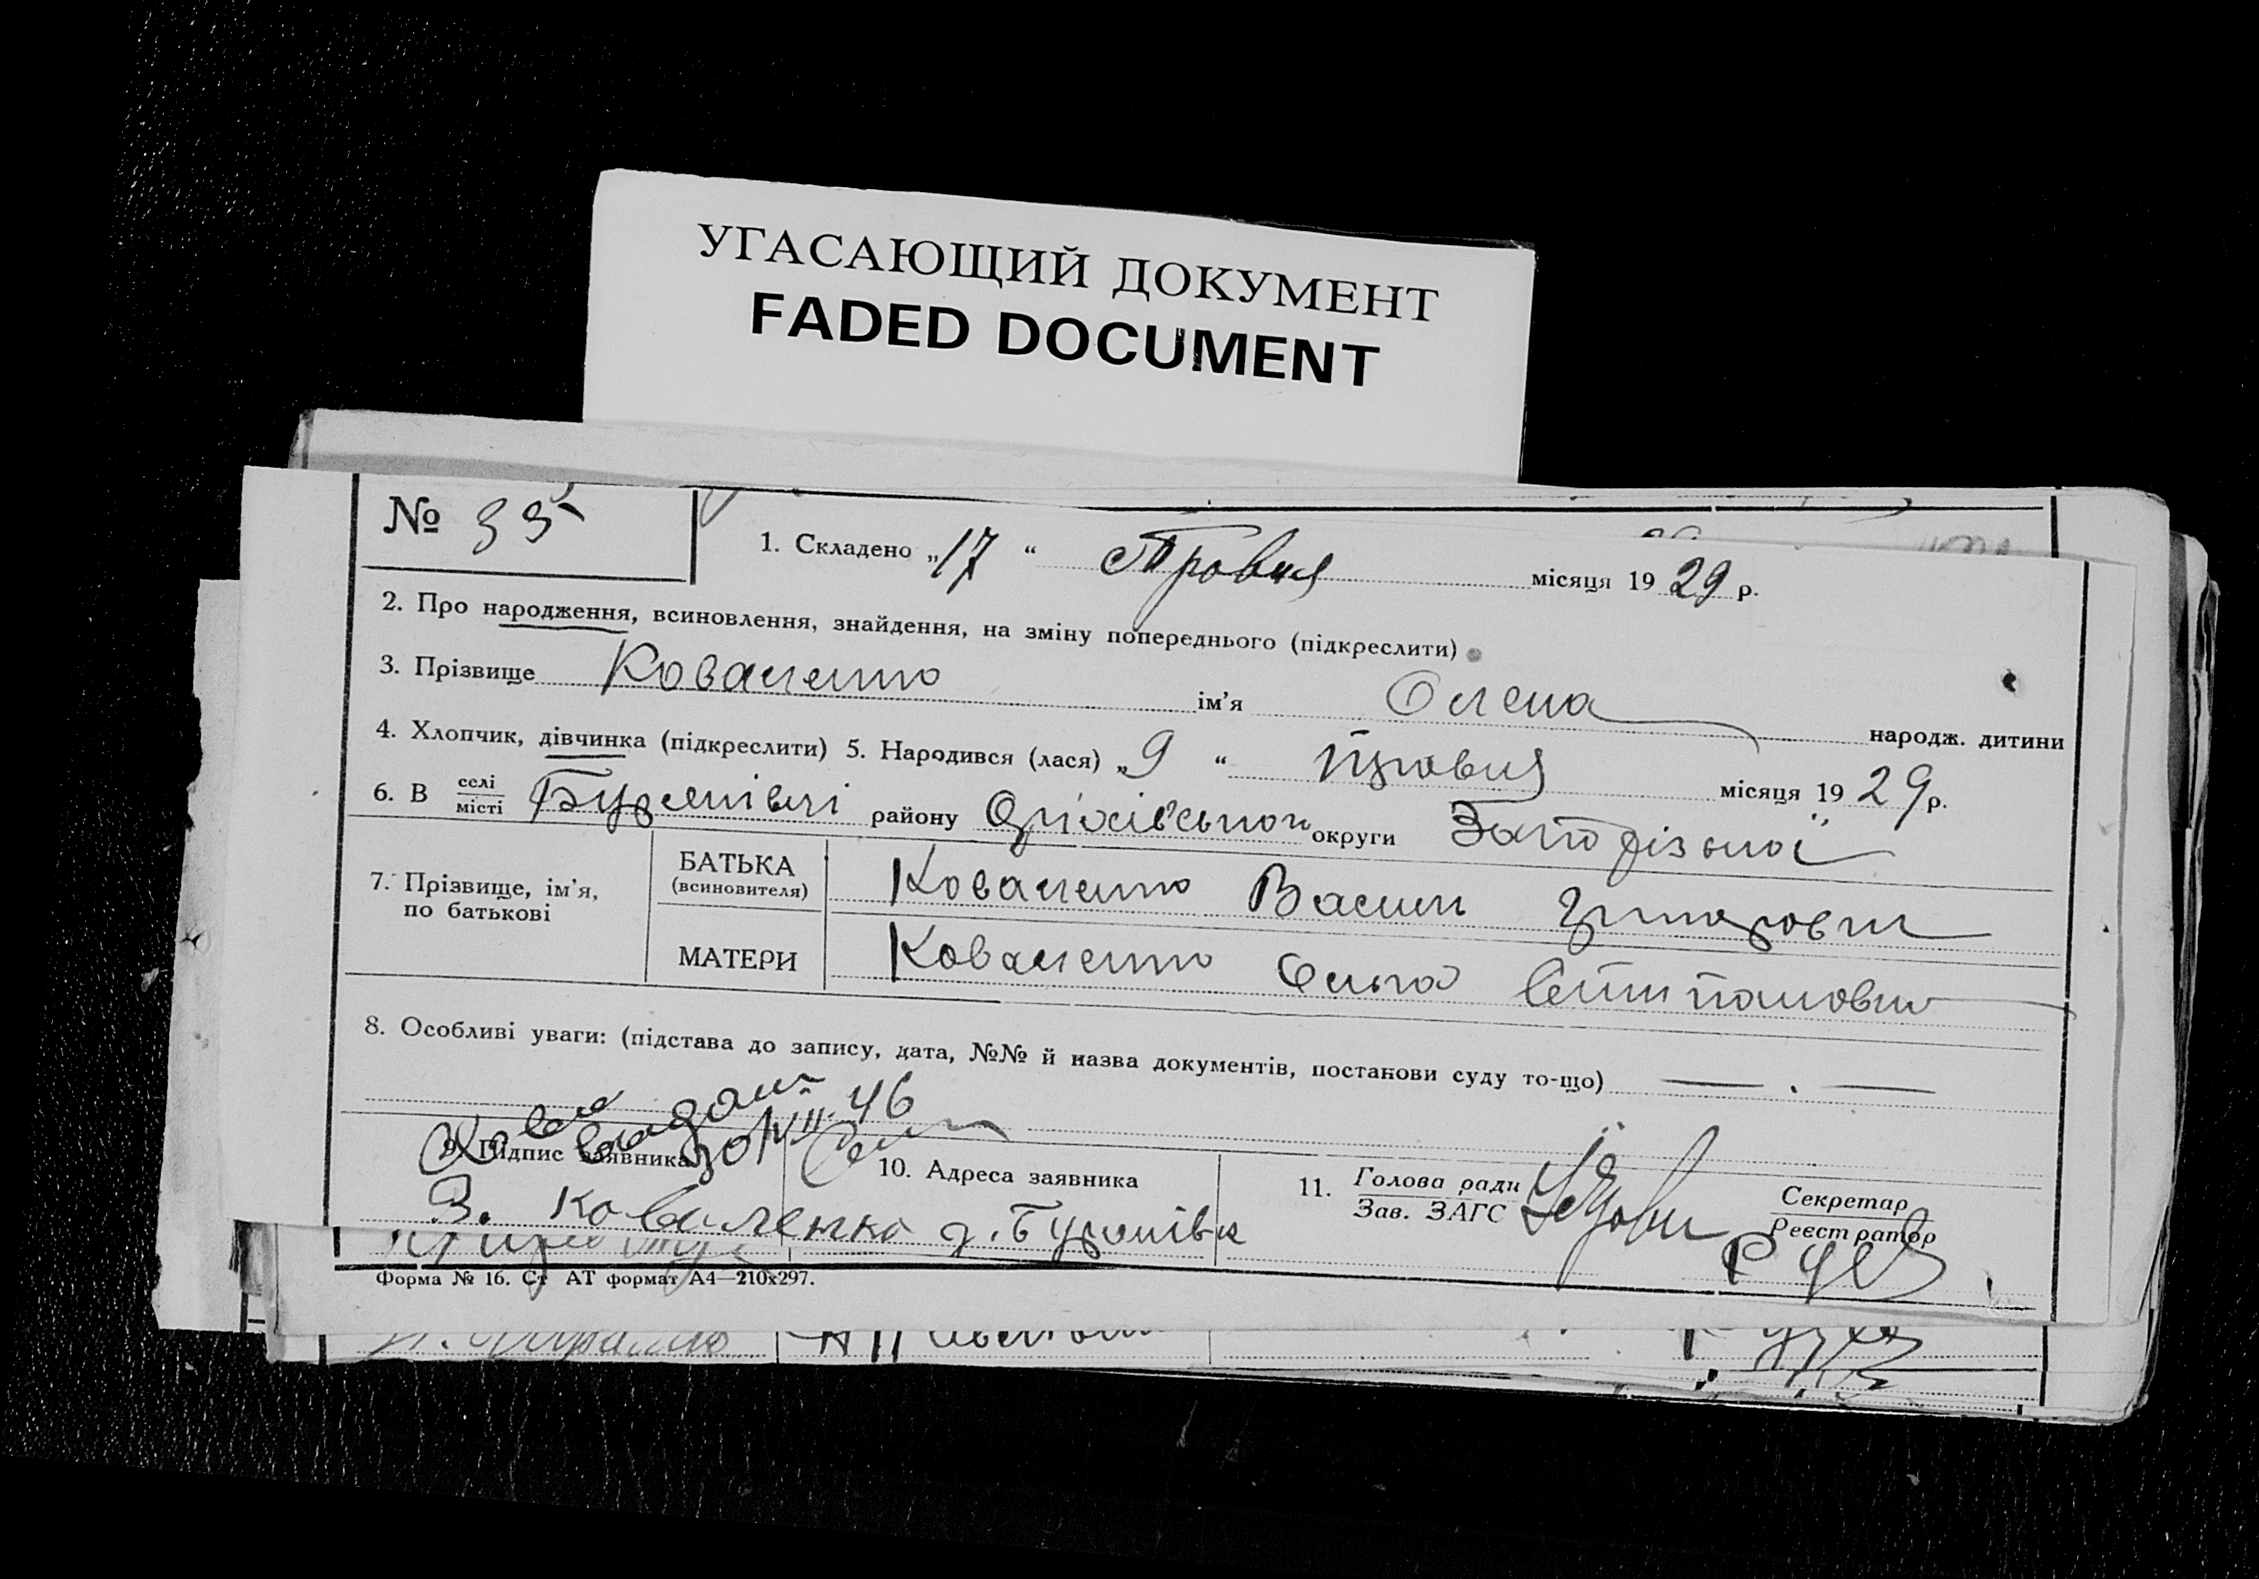 УГАСАЮЩИЙ ДОКУМЕНТ
FADED DOCUMENT
№ 35
1. Складено „17“ Травня місяця 1929 р.
2. Про народження, всиновлення, знайдення, на зміну попереднього (підкреслити)
3. Прізвище Коваленко ім'я Олена народж. дитини
4. Хлопчик, дівчинка (підкреслити) 5. Народився (лася) „9“ травня місяця 1929р.
6. В селі місті району Оріхівського округи Запорізької
7. Прізвище, ім'я, по батькові
БАТЬКА (всиновителя) Коваленко Василь
МАТЕРИ Коваленко Степановна
8. Особливі уваги: (підстава до запису, дата, №№ й назва документів, постанови суду то-що) — . —
46
9. Підпис заявника
10. Адреса заявника
11. Голова ради Зав. ЗАГС
Секретар Реєстратор
Коваленко
Форма № 16. Ст АТ формат А4—210x297.